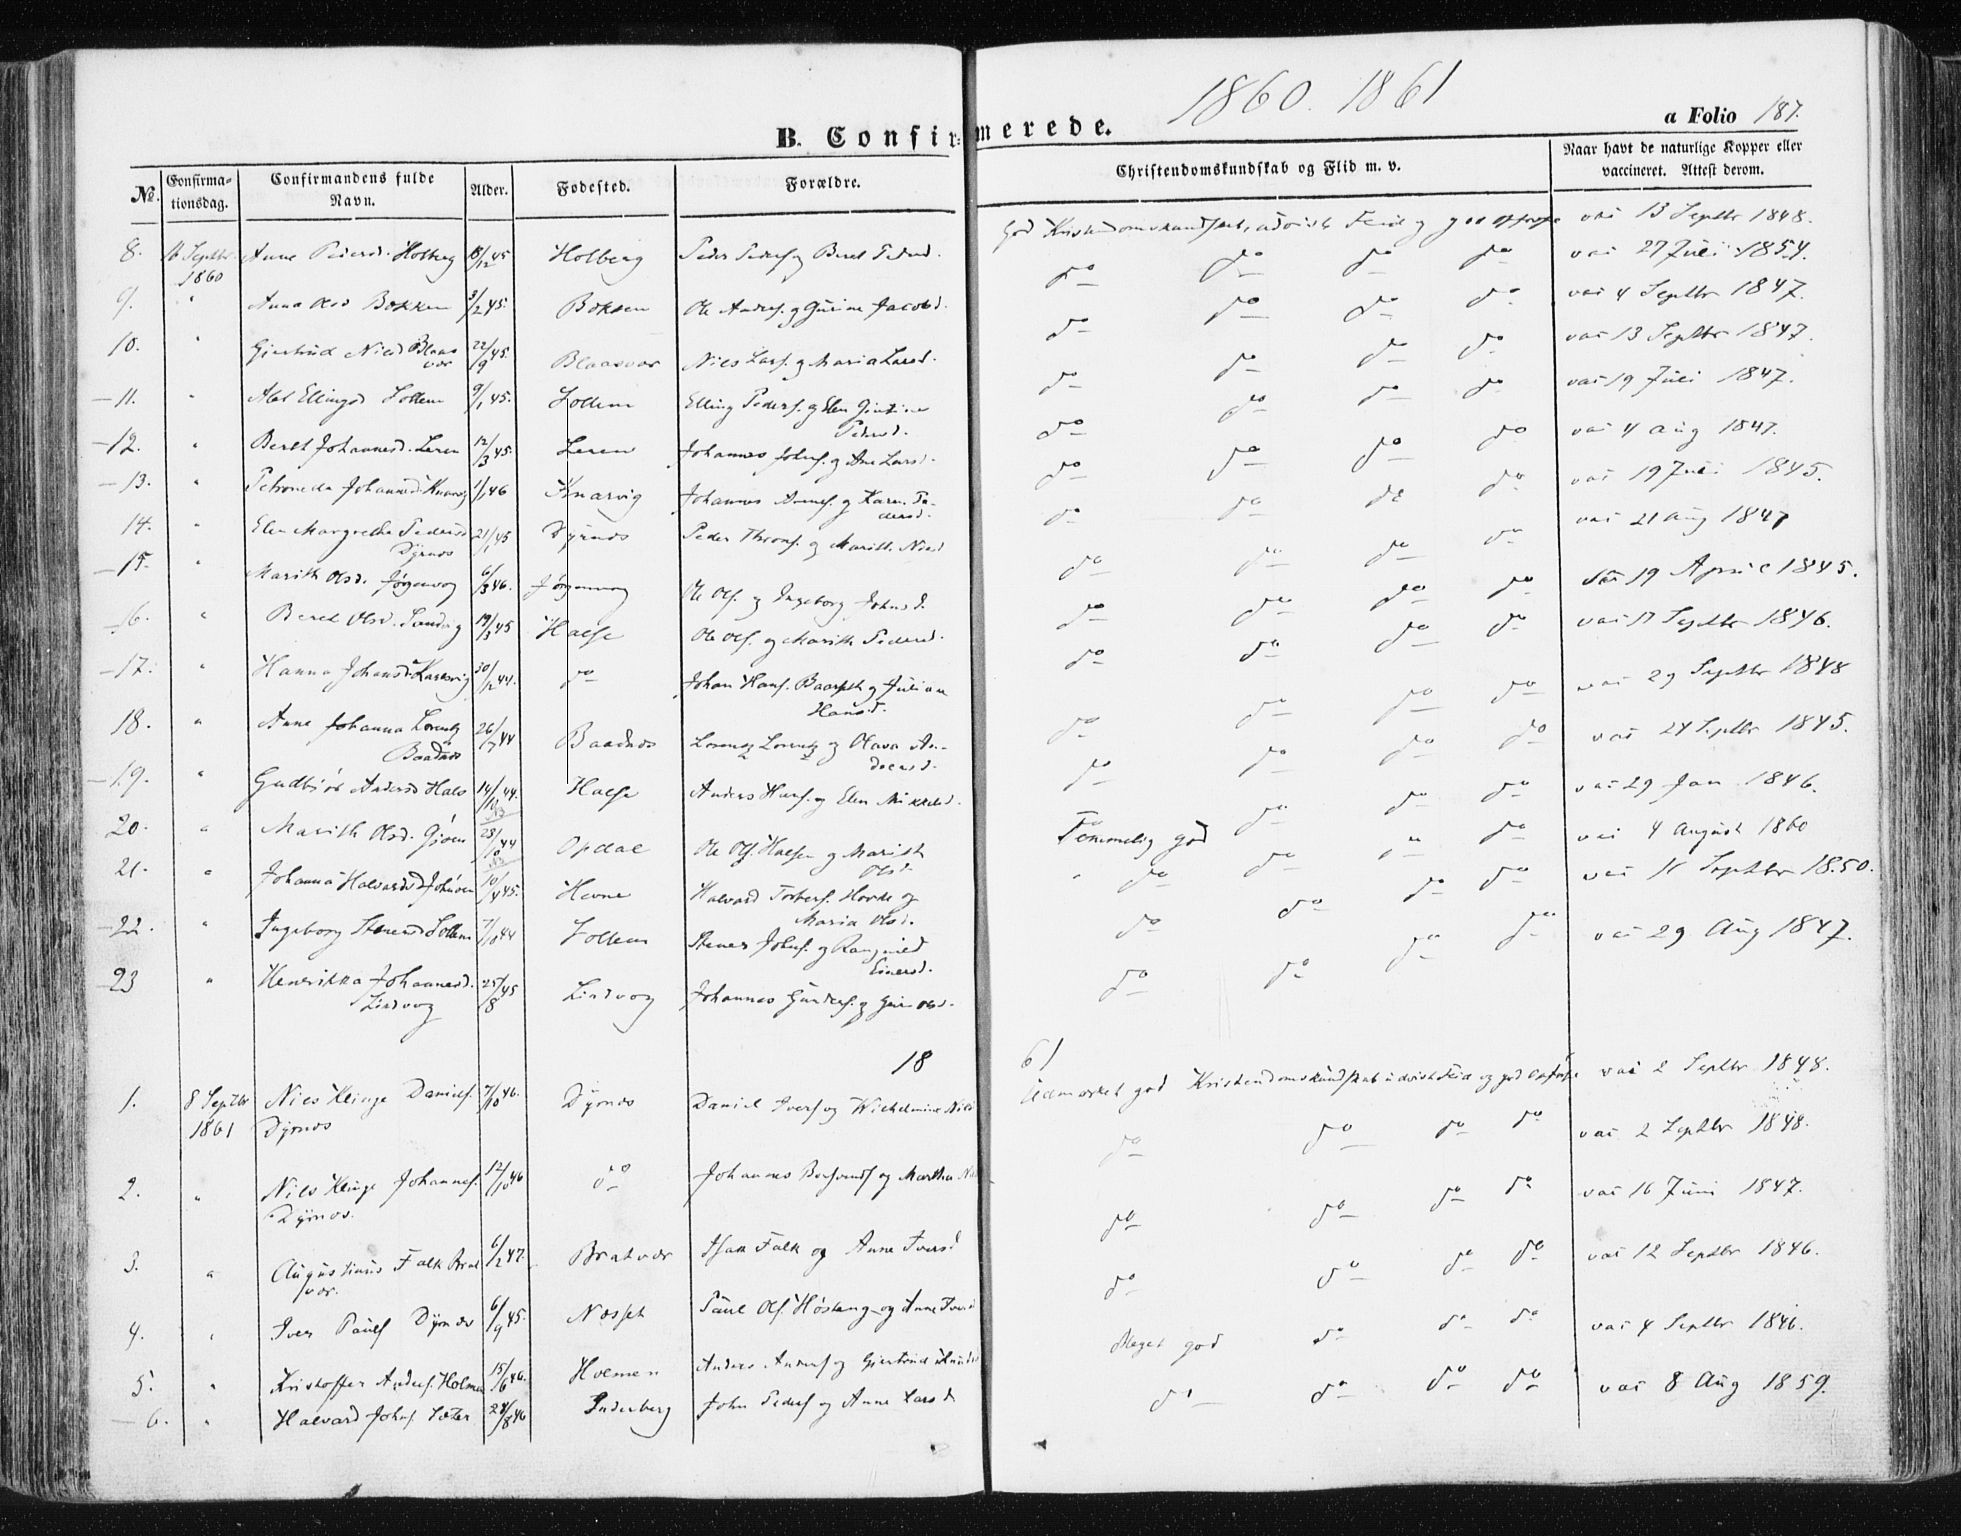 1860. 1861
B. Confirmerede.
a Folio 187.
№ Confirmationsdag. Confirmandens fulde Navn. Alder. Fødested. Forældre. Christendomskundskab og Flid m. v. Naar havt de naturlige Kopper eller vaccineret. Attest derom.
8. 16 Septbr 1860 Anne Pedersd. Holberg 45 Holberg Peder Peders. og Beret Pedersd. God Kristendomskundskab, udvist Flid og god vac 13 Septbr 1848.
9. " Anna Olsd Bokken 3/2 45. Boksen Ole Anders. og Gurine Jacobd. do do do do vac 27 Juli 1854.
10. " Giertrud Nielsd Blaasvær 22/9 45. Blaasvær Niels Lars. og Maria Larsd. do do do do vac 4 Septbr 1847.
11. " Abel Ellingsd Sollem 9/1 45. Sollem Elling Peders. og Elen Pedersd. do do do do vac 13 Septbr 1847.
12. " Bereth Johannesd. Leren 12/3 45. Leren Johannes Johns. og Ane Larsd. do do do do vac 19 Juli 1847.
13. " Johannesd. Knarvig 1/1 46 Knarvig Johannes og Karen Pedersd. do do do do vac 4 Aug 1847.
14. " Elen Margrethe Pedersd Dyrnes 21/1 45 Dyrnes Peder Throns. og Marith Nielsd do do do do vac 19 Juli 1845.
15. " Marith Olsd. Jørgenvog 6/3 46. Jørgenvog Ole Ols. og Ingeborg Johnsd. do do do do vac 21 Aug 1847
16. " Beret Olsd. 19/3 45 Halse Ole Ols. og Marith Pedersd. do do do do vac 19 April 1845.
17. " Hanna Johansd. 30/12 44. do Johan Hans. og Juliane Hansd. do do do do vac 17 Septbr 1846.
18. " Anne Johanna Lorentz Baadnes 26/7 44 Baadnes Lorentz Lorentz og Olava do do do do vac 29 Septbr 1848
19. " Gudbiør Andersd Hals 14/10 44. Halse Anders Hans. og Elen Mikkelsd. do do do do vac 24 Septbr 1845.
20. " Marith Olsd. Gjøen 25/10 44 Opdal Ole Ols. Halsen og Marith Olsd. Temmelig god do do do vac 29 Jan 1846.
21. " Johanna Halvardsd 10/4 45. Hevne Halvard Hovde og Maria Olsd. do do " do vac 4 August 1860
22. " Ingeborg Stenersd Sollem 7/10 44 Sollem Stener Johns. og Ragnild Einersd. do do do do vac 11 Septbr 1850.
23 " Henrikka Johannesd. Lindvog 25/8 45 Lindvog Johannes Gunders. og Guri Olsd. do do do do vac 29 Aug 1847.
1861
1. 8 Septbr 1861 Niels Klinge Daniels. Dyrnes 7/10 46. Dyrnes Daniel Ivers og Wilhelmine Niels Udmærket god Kristendomskundskab udvist Flid og god vac 2 Septbr 1848.
2. " Niels Klinge Johannes. Dyrnes. 12/10 46 do Johannes og Martha do do do do vac 2 Septbr 1848.
3. " Augustinus Falk Bratvær. 6/2 47. Bratvær Isak Falk og Anne Iversd do do do do vac 16 Juni 1847.
4. " Iver Pauls Dyrnes 6/9 45. Næsset Paul Ols. og Anne Iversd do do do do vac 12 Septbr 1846.
5. " Kristoffer Anders. Holmen 15/6 46. Holmen Anders Anders og Giertrud Knudsd Meget god do do do vac 4 Septbr 1846.
6. " Halvard Johns Sæter 28/8 46 Inderberg John Peders og Anne Larsd do do do do vac 8 Aug 1859.